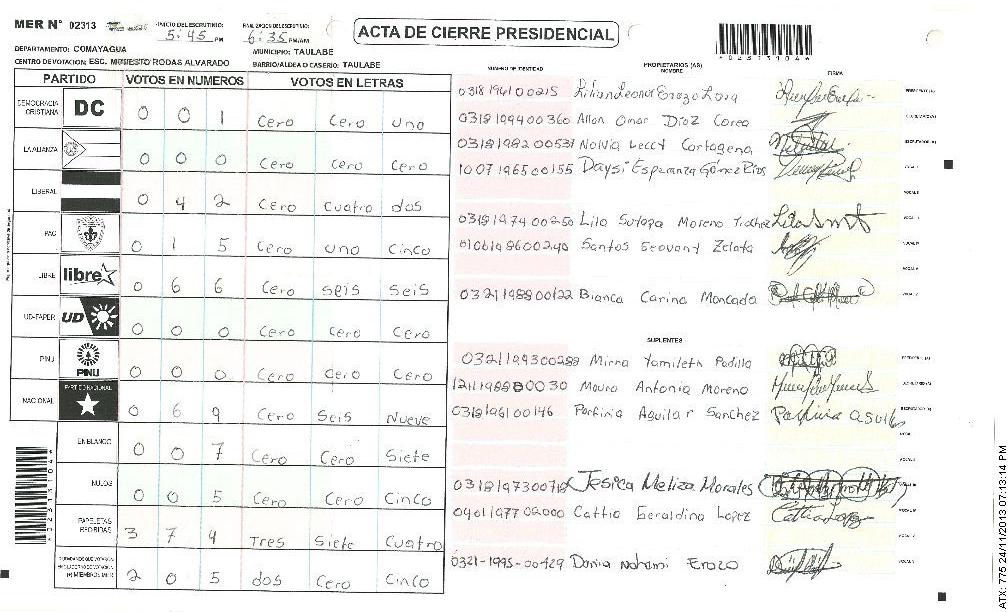 MER N° 02313
INICIO DEL ESCRUTINIO: 5:45 PM
FINALIZACION DEL ESCRUTINIO: 6:35 PM/AM
ACTA DE CIERRE PRESIDENCIAL
DEPARTAMENTO: COMAYAGUA
MUNICIPIO: TAULABE
CENTRO DE VOTACION: ESC. MODESTO RODAS ALVARADO
BARRIO/ALDEA O CASERIO: TAULABE
PARTIDO VOTOS EN NUMEROS VOTOS EN LETRAS
DEMOCRACIA CRISTIANA DC 0 0 1 Cero Cero uno
LA ALIANZA 0 0 0 Cero Cero Cero
LIBERAL 0 4 2 Cero Cuatro dos
PAC 0 1 5 Cero uno Cinco
LIBRE libre 0 6 6 Cero seis seis
UD-FAPER UD 0 0 0 Cero Cero Cero
PINU PINU 0 0 0 Cero Cero Cero
NACIONAL PARTIDO NACIONAL 0 6 9 Cero Seis Nueve
EN BLANCO 0 0 7 Cero Cero Siete
NULOS 0 0 5 Cero Cero Cinco
PAPELETAS RECIBIDAS 3 7 4 Tres Siete Cuatro
2 0 5 dos Cero Cinco
NUMERO DE IDENTIDAD PROPIETARIOS (AS) NOMBRE FIRMA
0318196100215
0318199400360 Allan Omar Diaz Corea
0318198200537 Cartagena
1007196500155 Daysi Esperanza Gómez Rios
0318197400250 Moreno
0106198600240 Santos Zelota
0321198800122 Bianca Carina Moncada
SUPLENTES
0321199300288 Mirna Yamileth Padilla
Antonia Moreno
0318196100146 Porfiria Aguilar Sanchez
Jesica Meliza Morales
0401197702000 Geraldina Lopez
0321-1995-00429 Dania Nohemi Erazo
ATX: 775 24/11/2013 07:13:14 PM